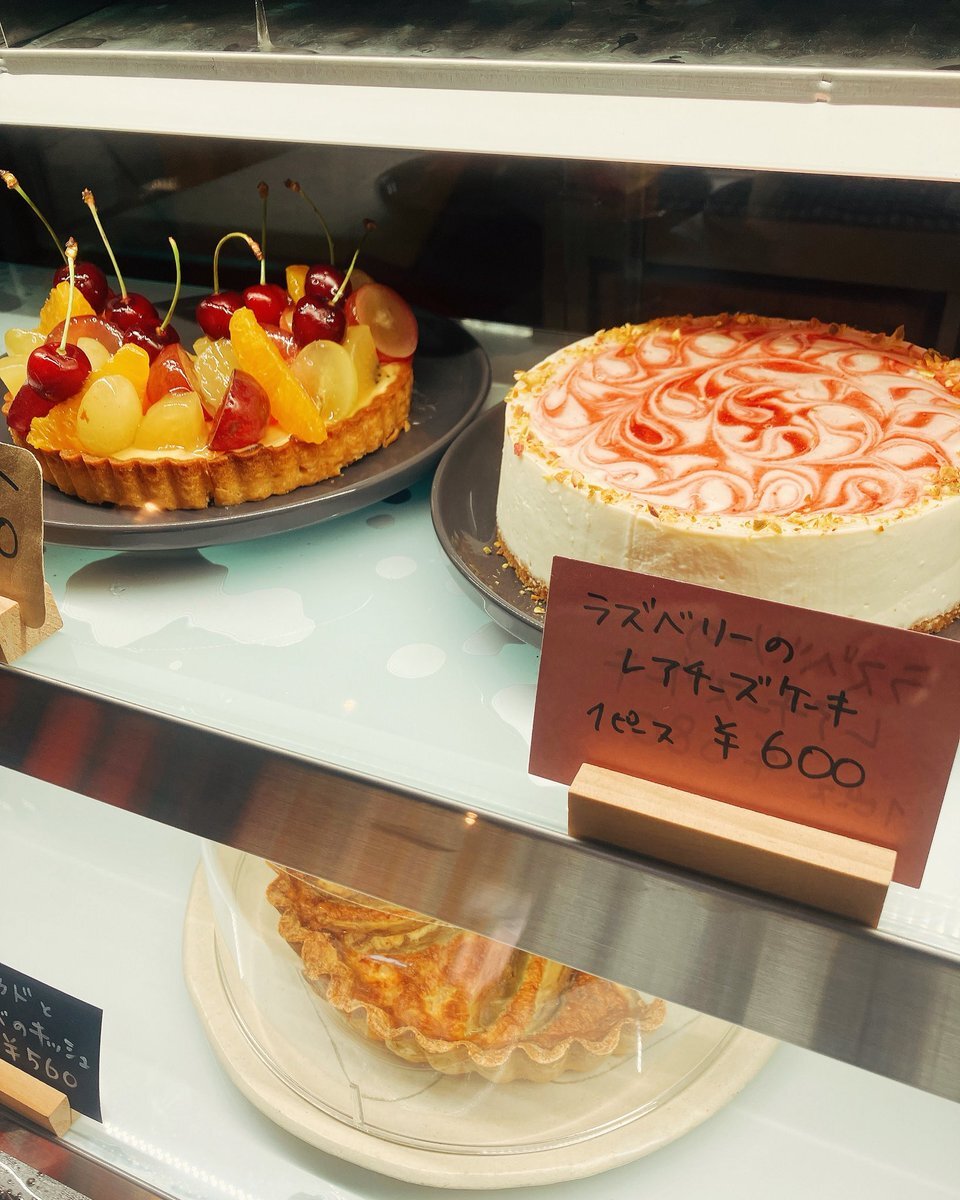 ラズベリーの
レアチーズケーキ
1ピース ¥600
ドと
のキッシュ
¥560